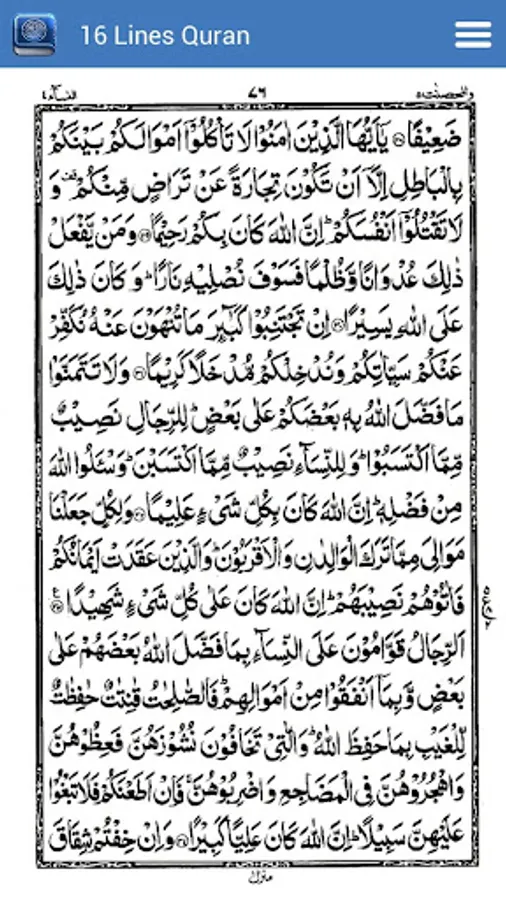 16 Lines Quran
والمحصنت٥ ٧٦ النساء٤
ضَعِيْفًا ۝٢٨ يٰۤاَيُّهَا الَّذِيْنَ اٰمَنُوْا لَا تَاْكُلُوْۤا اَمْوَالَكُمْ بَيْنَكُمْ
بِالْبَاطِلِ اِلَّاۤ اَنْ تَكُوْنَ تِجَارَةً عَنْ تَرَاضٍ مِّنْكُمْ ۫ وَ
لَا تَقْتُلُوْۤا اَنْفُسَكُمْ ؕ اِنَّ اللّٰهَ كَانَ بِكُمْ رَحِيْمًا ۝٢٩ وَمَنْ يَّفْعَلْ
ذٰلِكَ عُدْوَانًا وَّظُلْمًا فَسَوْفَ نُصْلِيْهِ نَارًا ؕ وَكَانَ ذٰلِكَ
عَلَى اللّٰهِ يَسِيْرًا ۝٣٠ اِنْ تَجْتَنِبُوْا كَبَآئِرَ مَا تُنْهَوْنَ عَنْهُ نُكَفِّرْ
عَنْكُمْ سَيِّاٰتِكُمْ وَنُدْخِلْكُمْ مُّدْخَلًا كَرِيْمًا ۝٣١ وَلَا تَتَمَنَّوْا
مَا فَضَّلَ اللّٰهُ بِهٖ بَعْضَكُمْ عَلٰى بَعْضٍ ؕ لِلرِّجَالِ نَصِيْبٌ
مِّمَّا اكْتَسَبُوْا ؕ وَلِلنِّسَآءِ نَصِيْبٌ مِّمَّا اكْتَسَبْنَ ؕ وَسْئَلُوا اللّٰهَ
مِنْ فَضْلِهٖ ؕ اِنَّ اللّٰهَ كَانَ بِكُلِّ شَيْءٍ عَلِيْمًا ۝٣٢ وَلِكُلٍّ جَعَلْنَا
مَوَالِيَ مِمَّا تَرَكَ الْوَالِدٰنِ وَالْاَقْرَبُوْنَ ؕ وَالَّذِيْنَ عَقَدَتْ اَيْمَانُكُمْ
فَاٰتُوْهُمْ نَصِيْبَهُمْ ؕ اِنَّ اللّٰهَ كَانَ عَلٰى كُلِّ شَيْءٍ شَهِيْدًا ۝٣٣
اَلرِّجَالُ قَوّٰمُوْنَ عَلَى النِّسَآءِ بِمَا فَضَّلَ اللّٰهُ بَعْضَهُمْ عَلٰى
بَعْضٍ وَّبِمَاۤ اَنْفَقُوْا مِنْ اَمْوَالِهِمْ ؕ فَالصّٰلِحٰتُ قٰنِتٰتٌ حٰفِظٰتٌ
لِّلْغَيْبِ بِمَا حَفِظَ اللّٰهُ ؕ وَالّٰتِيْ تَخَافُوْنَ نُشُوْزَهُنَّ فَعِظُوْهُنَّ
وَاهْجُرُوْهُنَّ فِي الْمَضَاجِعِ وَاضْرِبُوْهُنَّ ۚ فَاِنْ اَطَعْنَكُمْ فَلَا تَبْغُوْا
عَلَيْهِنَّ سَبِيْلًا ؕ اِنَّ اللّٰهَ كَانَ عَلِيًّا كَبِيْرًا ۝٣٤ وَاِنْ خِفْتُمْ شِقَاقَ